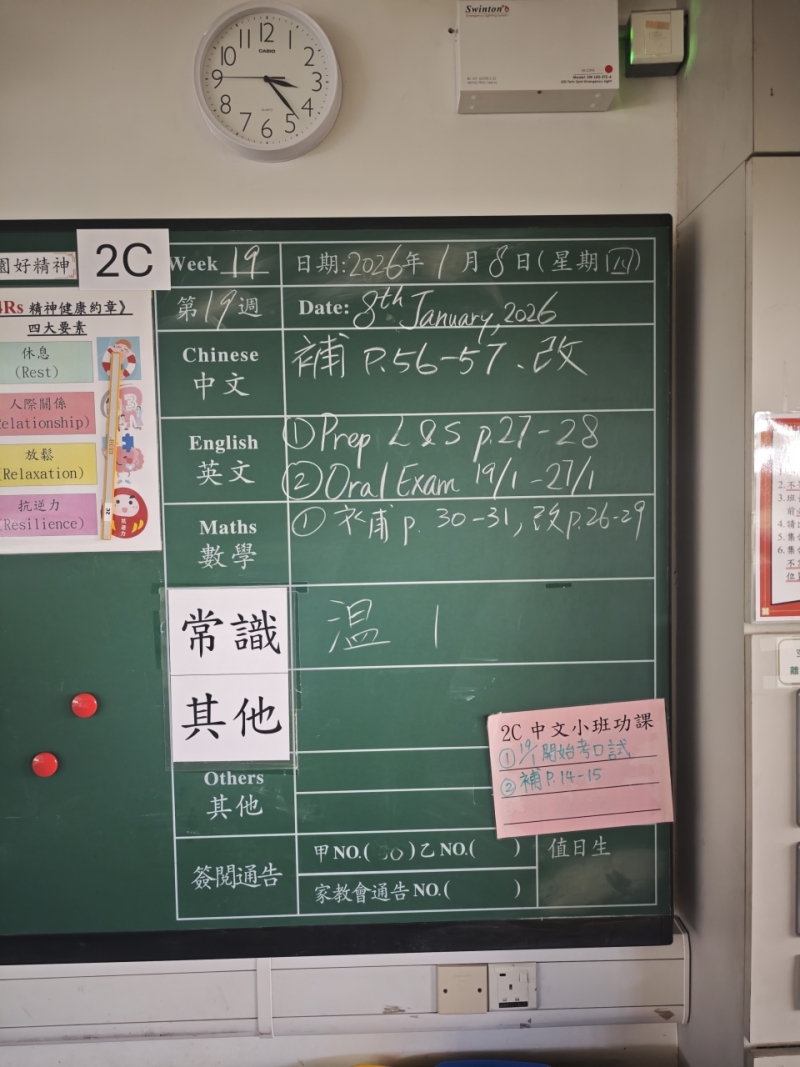 12
1
2
3
4
5
6
7
8
9
10
11
CASIO
QUARTZ
Swinton
Emergency Lighting System
園好精神
2C
Week 19
日期:2026年 1 月 8 日(星期四)
第19週
Date: 8th January, 2026
4Rs 精神健康約章》
四大要素
休息
(Rest)
人際關係
Relationship)
放鬆
(Relaxation)
抗逆力
(Resilience)
Chinese
中文
補 P.56-57、改
English
英文
① Prep L&S p.27-28
② Oral Exam 19/1 - 27/1
Maths
數學
① 補 p. 30-31, 改 p.26-29
常識
溫 1
其他
Others
其他
2C 中文小班功課
① 19/1 開始考口試
② 補 P.14-15
簽閱通告
甲NO.( 30 )乙NO.( )
家教會通告NO.( )
值日生